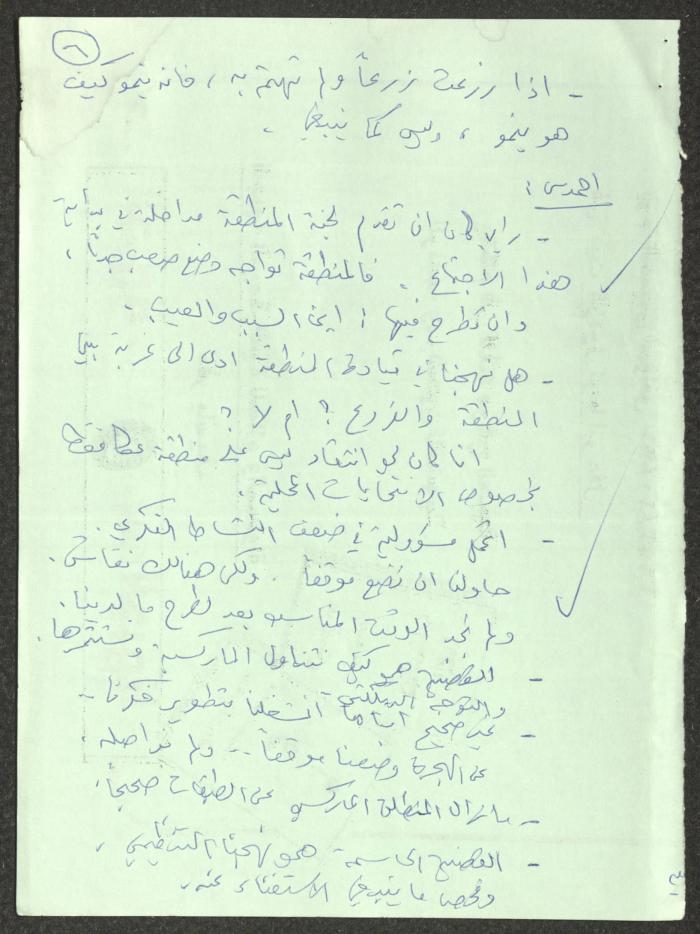 ٨
- اذا زرعت زرعاً ولم تهتم به ، فانه ينمو كيف
هو ينمو ، وليس كما ينبغي .
احمد س :
- رأيي كان ان تقدم لجنة المنطقة مداخلة في بداية
هذا الاجتماع . فالمنطقة تواجه وضع صعب جداً ،
وان تطرح فيها : اين السبب والعيب .
- هل نهجنا في قيادة المنطقة ادى الى غربة بين
المنطقة والفروع ؟ ام لا ؟
انا كان لي انتقاد ليس على منطقة عكا فقط
بخصوص الانتخابات المحلية .
- اتحمل مسؤولية في ضعف النشاط الفكري .
حاولنا ان نضع موقفاً . ولكن هنالك نقاش .
ولم نجد الوقت المناسب بعد لطرح ما لدينا .
- القضية هو كيف نتناول الماركسية ونستثمرها .
- غير صحيح اننا انشغلنا بتطوير فكرنا ..
عن الهجرة وضعنا موقفاً .. ولم نواصله .
- ما زال المنطلق الماركسي عن الطبقات صحيحاً .
- القضية الحاسمة هو نهجنا التنظيمي ،
وفحص ما ينبغي الاستغناء عنه .